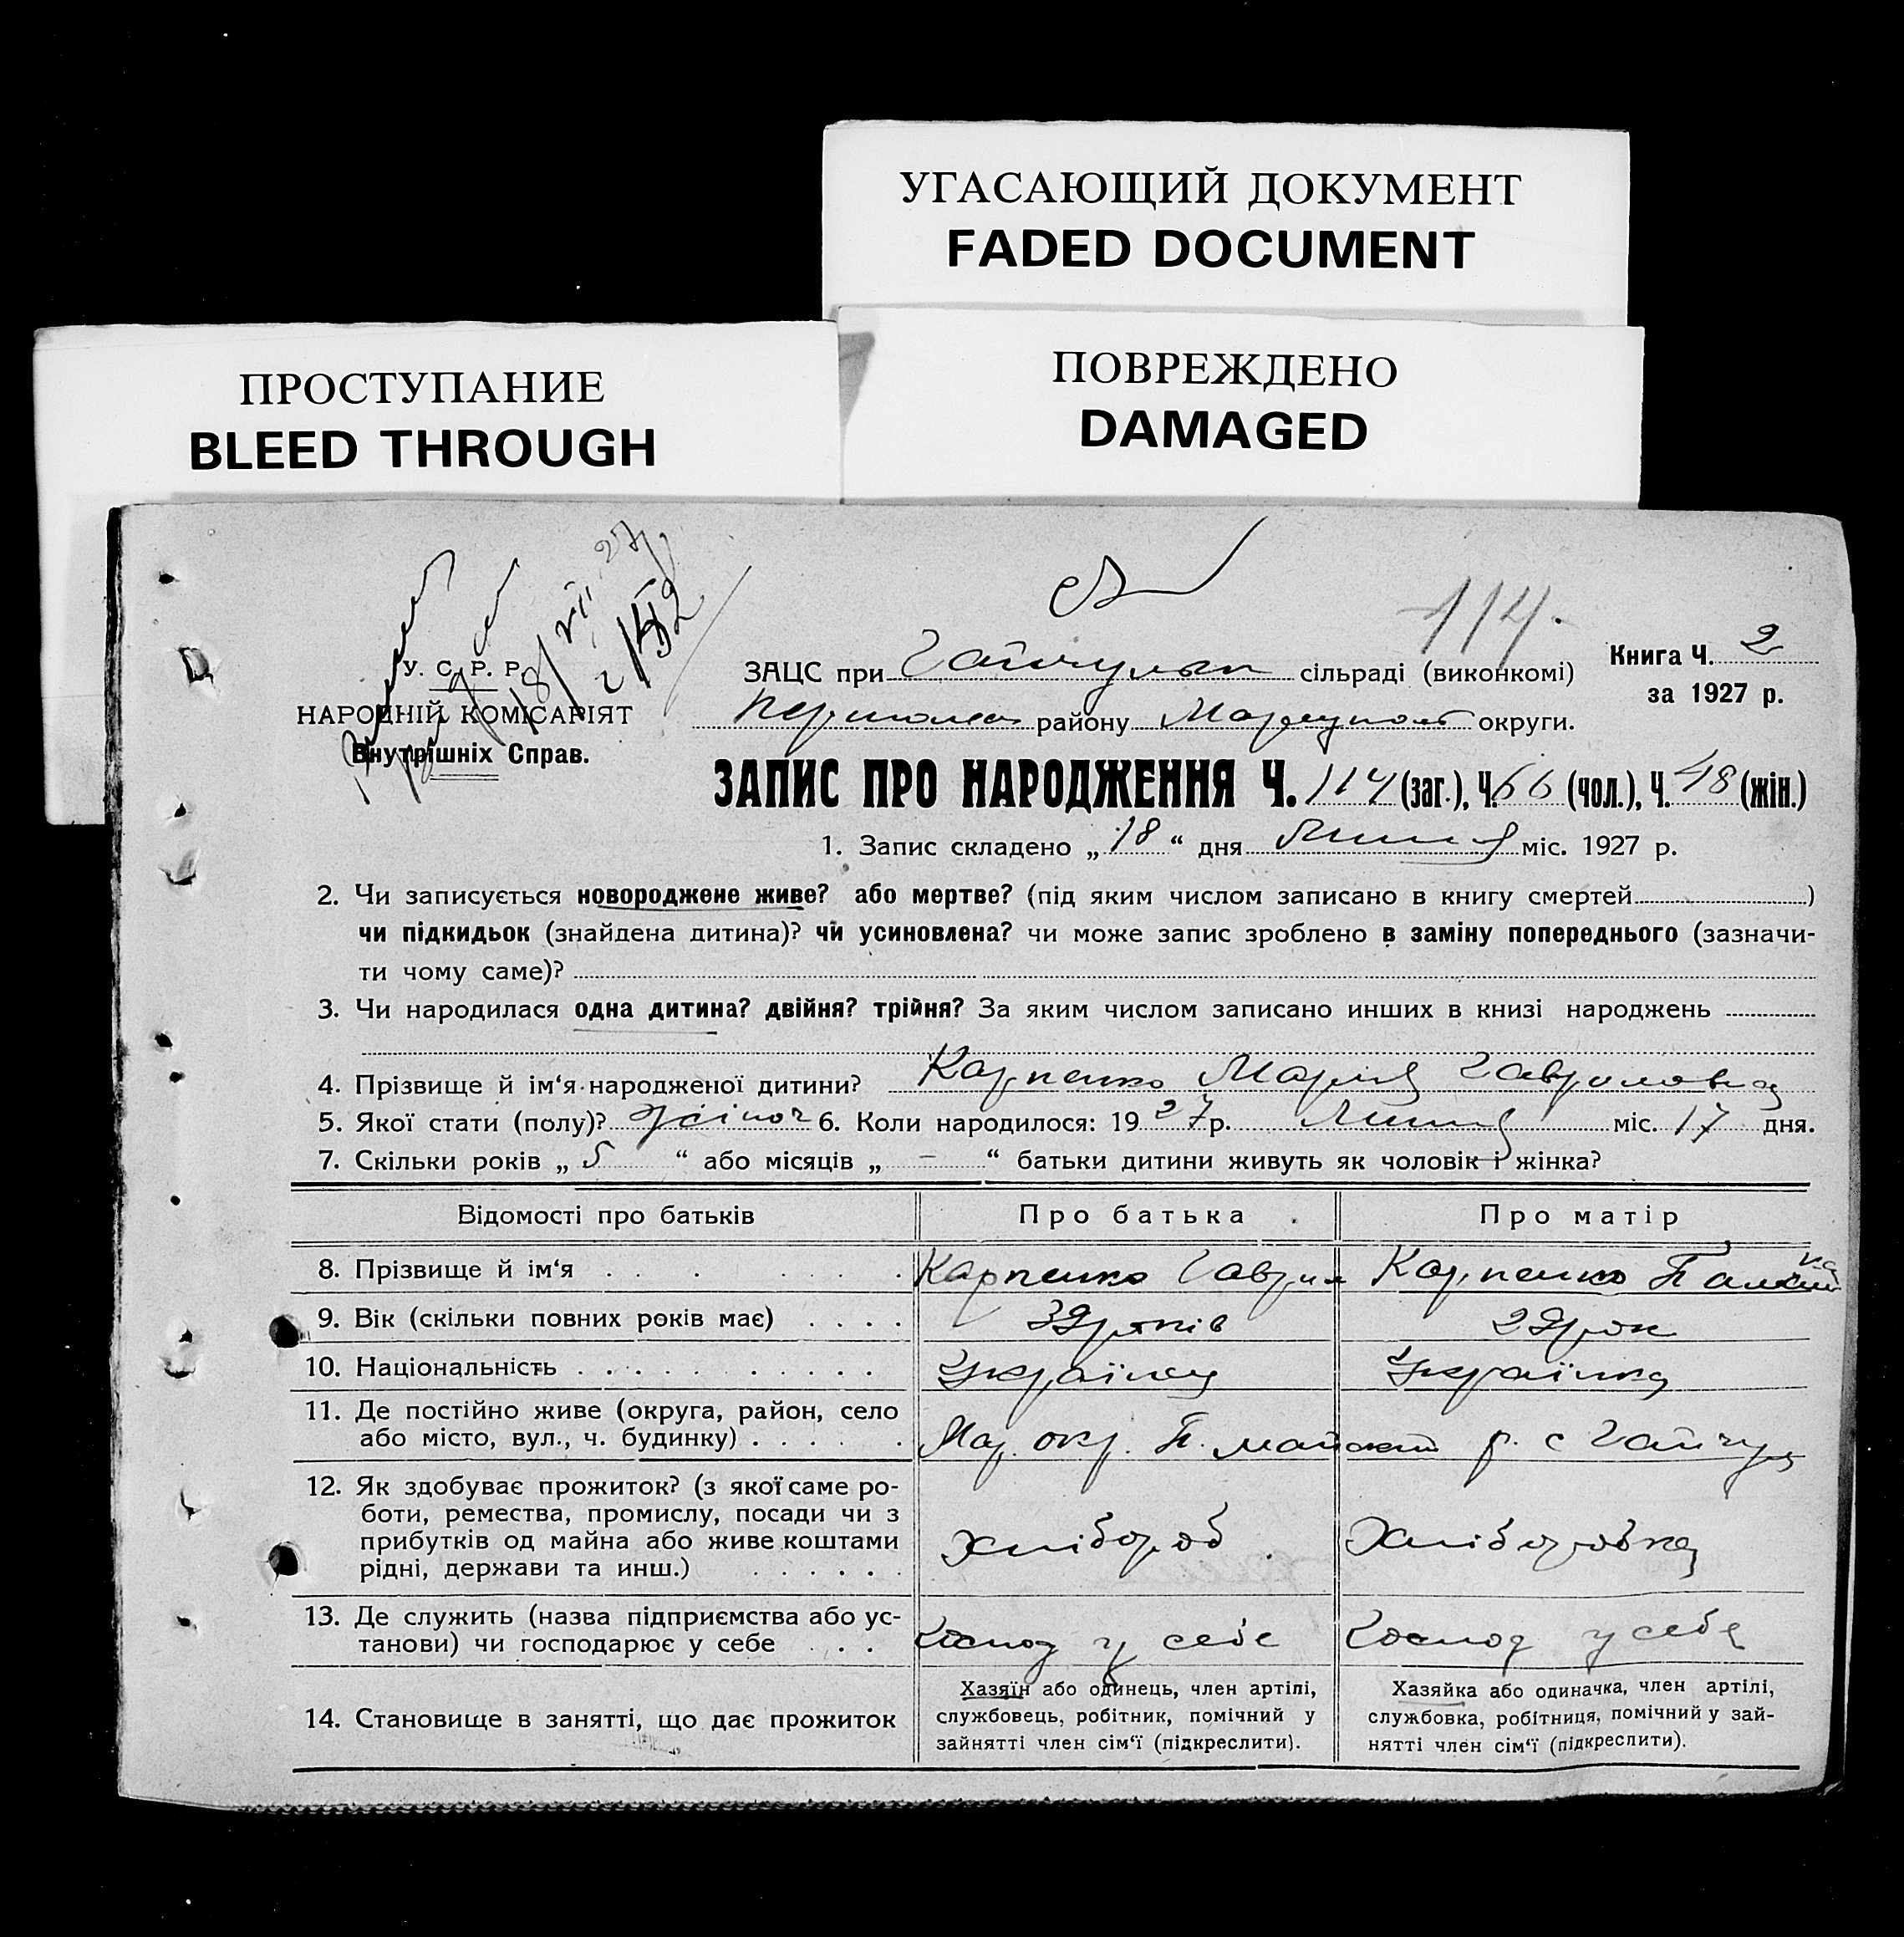 УГАСАЮЩИЙ ДОКУМЕНТ
FADED DOCUMENT
ПРОСТУПАНИЕ
BLEED THROUGH
ПОВРЕЖДЕНО
DAMAGED
18/VII 27
114.
У. С. Р. Р.
НАРОДНІЙ КОМІСАРІЯТ
Внутрішніх Справ.
Книга Ч. 2
за 1927 р.
ЗАЦС при Гайчульск сільраді (виконкомі)
Першомай району Маріупол округи.
ЗАПИС ПРО НАРОДЖЕННЯ Ч. 114 (заг.), Ч. 66 (чол.), Ч. 48 (жін.)
1. Запис складено „ 18 “ дня Липня міс. 1927 р.
2. Чи записується новороджене живе? або мертве? (під яким числом записано в книгу смертей )
чи підкидьок (знайдена дитина)? чи усиновлена? чи може запис зроблено в заміну попереднього (зазначи-
ти чому саме)?
3. Чи народилася одна дитина? двійня? трійня? За яким числом записано инших в книзі народжень
4. Прізвище й ім‘я народженої дитини? Карпенко Марія Гавриловна
5. Якої стати (полу)? жіноч 6. Коли народилося: 1927 р. Липня міс. 17 дня.
7. Скільки років „ 5 “ або місяців „ – “ батьки дитини живуть як чоловік і жінка?
Відомості про батьків Про батька Про матір
8. Прізвище й ім‘я Карпенко Гаврил Карпенко
9. Вік (скільки повних років має) років рок
10. Національність Українец Українка
11. Де постійно живе (округа, район, село
або місто, вул., ч. будинку) Мар. окр. П. майский р. с Гайчул
12. Як здобуває прожиток? (з якої саме ро-
боти, ремества, промислу, посади чи з
прибутків од майна або живе коштами
рідні, держави та инш.) Хлібороб Хліборобка
13. Де служить (назва підприємства або ус-
танови) чи господарює у себе Господ у себе Господ у себе
14. Становище в занятті, що дає прожиток
Хазяїн або одинець, член артілі,
службовець, робітник, помічний у
зайнятті член сім‘ї (підкреслити).
Хазяйка або одиначка, член артілі,
службовка, робітниця, помічний у зай-
нятті член сім‘ї (підкреслити).